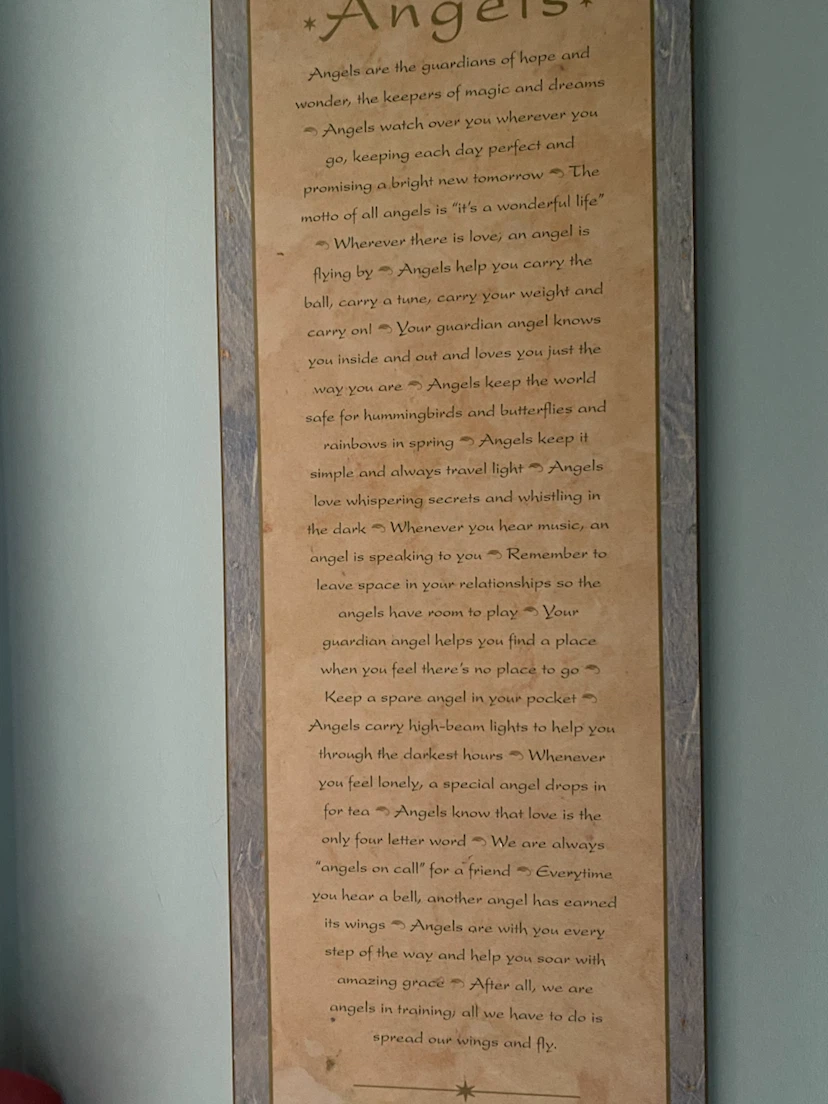 Angels
Angels are the guardians of hope and
wonder, the keepers of magic and dreams
Angels watch over you wherever you
go, keeping each day perfect and
promising a bright new tomorrow The
motto of all angels is "it's a wonderful life"
Wherever there is love, an angel is
flying by Angels help you carry the
ball, carry a tune, carry your weight and
carry on! Your guardian angel knows
you inside and out and loves you just the
way you are Angels keep the world
safe for hummingbirds and butterflies and
rainbows in spring Angels keep it
simple and always travel light Angels
love whispering secrets and whistling in
the dark Whenever you hear music, an
angel is speaking to you Remember to
leave space in your relationships so the
angels have room to play Your
guardian angel helps you find a place
when you feel there's no place to go
Keep a spare angel in your pocket
Angels carry high-beam lights to help you
through the darkest hours Whenever
you feel lonely, a special angel drops in
for tea Angels know that love is the
only four letter word We are always
"angels on call" for a friend Everytime
you hear a bell, another angel has earned
its wings Angels are with you every
step of the way and help you soar with
amazing grace After all, we are
angels in training; all we have to do is
spread our wings and fly.